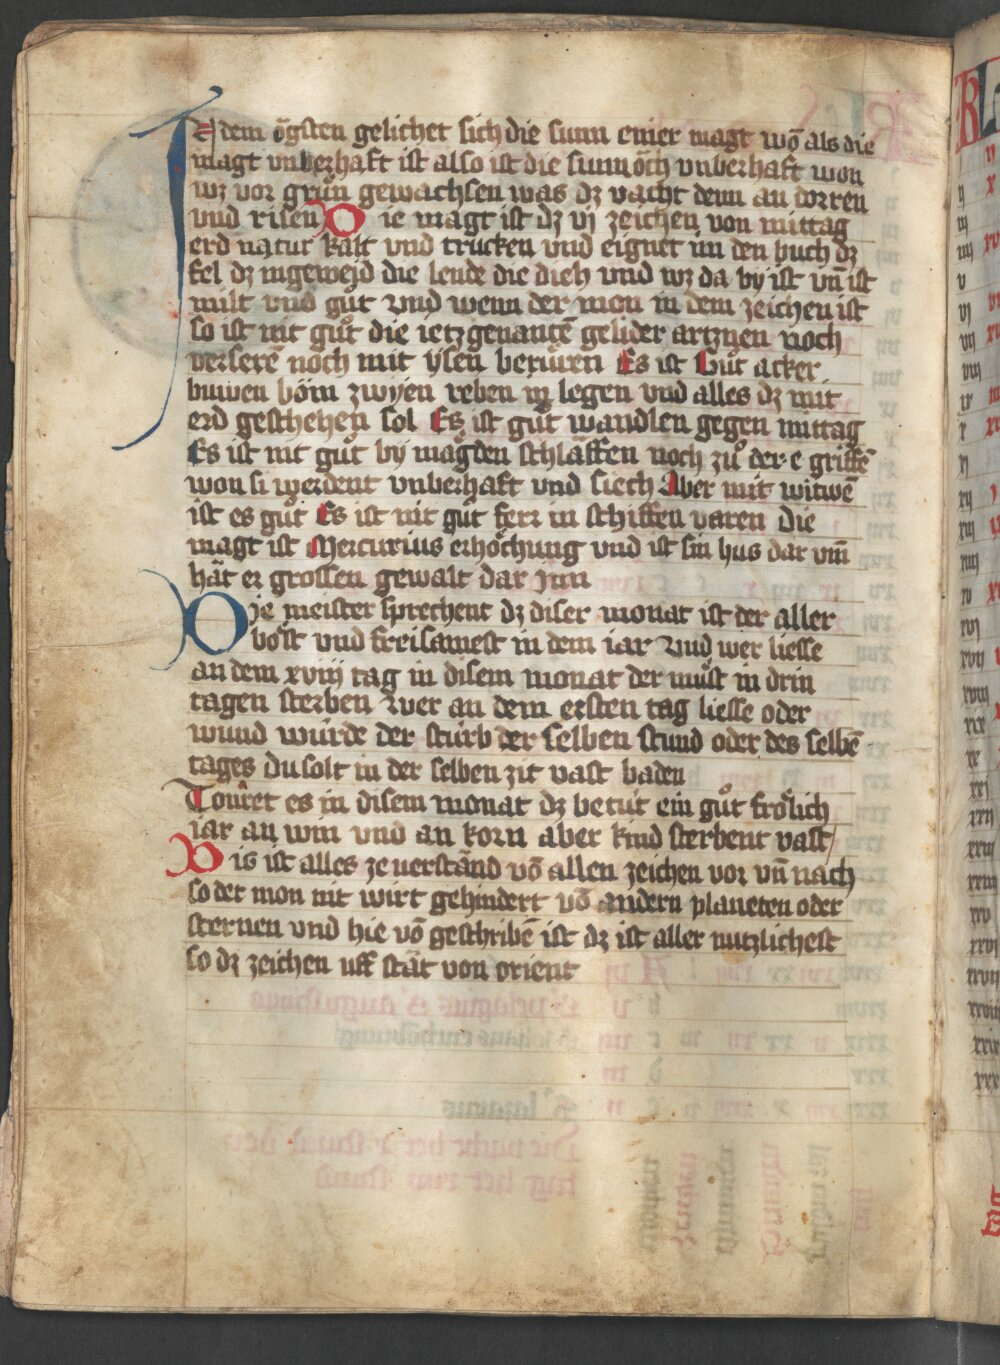 IN dem ŏgsten gelichet sich die sunn einer magt wō als die
magt vnberhaft ist also ist die sunn ŏch vnberhaft won
wz vor grün gewachsen was dz vacht denn an dorren
vnd risen Die magt ist dz vj zeichen von mittag
erd natur kalt vnd trucken vnd eignet im den buch dz
fel dz ingeweid die lende die dieh vnd wz da by ist vn̄ ist
milt vnd gůt vnd wenn der mon in dem zeichen ist
so ist nit gůt die ietz genantē gelider artznen noch
verserē noch mit ysen berüren Es ist Gůt acker
buwen böm zwyen reben in legen vnd alles dz mit
erd geschehen sol Es ist gůt wandlen gegen mittag
Es ist nit gůt by mägden schlaffen noch zů der e griffē
won si werdent vnberhaft vnd siech Aber mit witwē
ist es gůt Es ist nit gůt ferr in schiffen varen Die
magt ist Mercurius erhöchung vnd ist sin hus dar vm̄
hāt er grossen gewalt dar jnn
Die meister sprechent dz diser monat ist der aller
bost vnd freisamest in dem iar Vnd wer liesse
an dem xviij tag in disem monat der můst in drin
tagen sterben Wer an dem ersten tag liesse oder
wund wurde der sturb der selben stund oder des selbē
tages du solt in der selben zit vast baden
Tonret es in disem monat dz betüt ein gůt frölich
iar an win vnd an korn aber kind sterbent vast
Dis ist alles ze uerstānd vō allen zeichen vor vn̄ nach
so der mon nit wirt gehindert vō andern planeten oder
sternen vnd hie vō geschribē ist dz ist aller nutzlichest
so dz zeichen uff stāt von orient